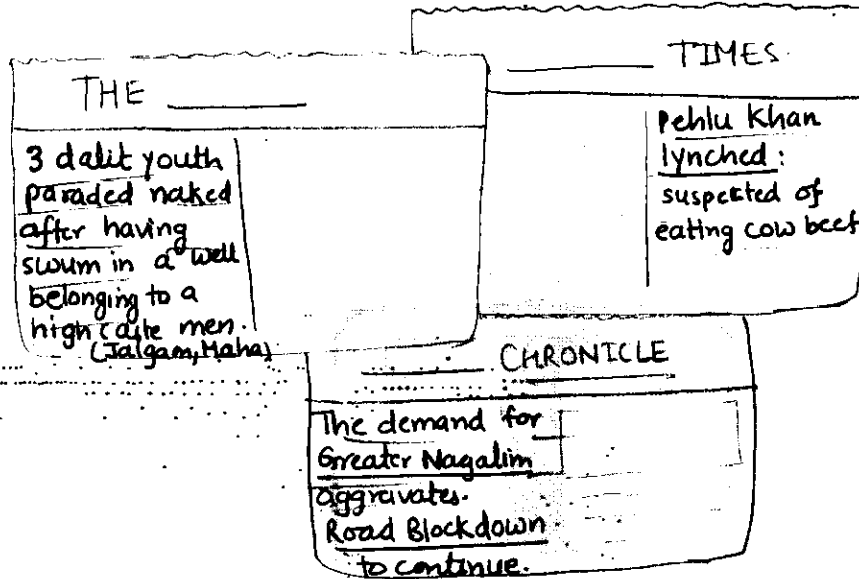 THE ______
3 dalit youth
paraded naked
after having
swum in a well
belonging to a
high caste men.
(Jalgam, Maha)
______ TIMES.
Pehlu Khan
lynched :
suspected of
eating cow beef
______ CHRONICLE
The demand for
Greater Nagalim
aggravates.
Road Blockdown
to continue.